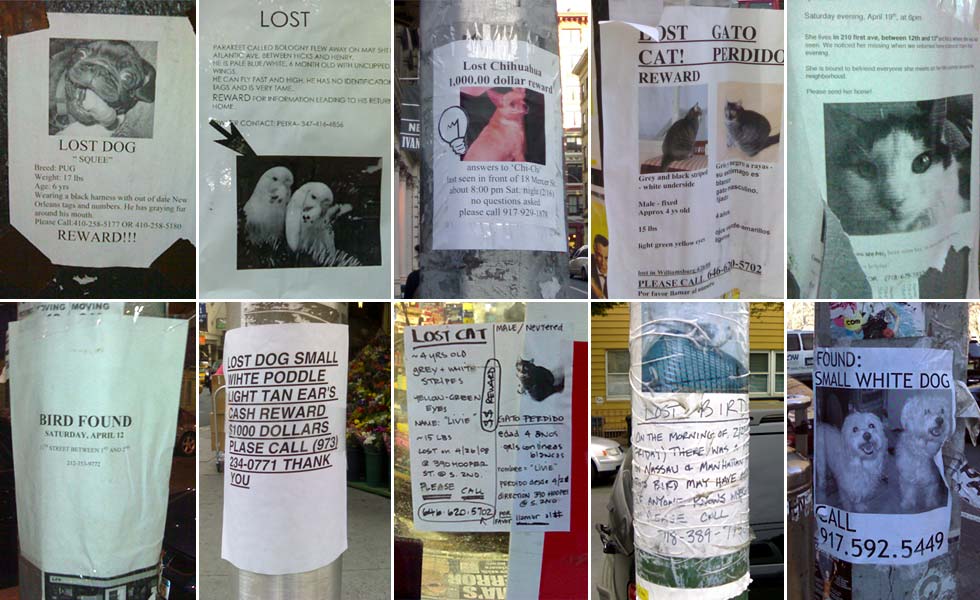 LOST DOG
"SQUEE"
Breed: PUG
Weight: 17 lbs
Age: 6 yrs
Wearing a black harness with out of date New
Orleans tags and numbers. He has graying fur
around his mouth.
Please Call:410-258-5177 OR 410-258-5180
REWARD!!!
LOST
PARAKEET CALLED BOLOGNY FLEW AWAY ON MAY 5TH
ATLANTIC AVE. BETWEEN HICKS AND HENRY.
HE IS PALE BLUE/WHITE, 8 MONTH OLD WITH UNCLIPPED
WINGS.
HE CAN FLY FAST AND HIGH. HE HAS NO IDENTIFICATION
TAGS AND IS VERY TAME.
REWARD FOR INFORMATION LEADING TO HIS RETURN
HOME.
CONTACT: PETRA- 347-416-4856
Lost Chihuahua
1,000.00 dollar reward
answers to 'Chi-Chi'
last seen in front of 18 Mercer St.
about 8:00 pm Sat. night (2/16)
no questions asked
please call 917-929-1878
LOST GATO
CAT! PERDIDO
REWARD
Grey and black striped
- white underside
Male - fixed
Approx 4 ys old
15 lbs
light green yellow eyes
lost in Williamsburg
PLEASE CALL 646-620-5702
Por favor llamar al numero
Gris - negro a rayas -
su estomago es
blanco
gato masculino,
fijado
4 años
ojos verde-amarillos
ligeros
Saturday evening, April 19th, at 6pm.
She lives in 210 first ave, between 12th and 13th
seen. We noticed her missing when we returned home
evening.
She is bound to befriend everyone she meets
neighborhood.
Please send her home!
MOVING MOVING
BIRD FOUND
SATURDAY, APRIL 12
STREET BETWEEN 1ST AND 2ND
212-353-9772
LOST DOG SMALL
WIHTE PODDLE
LIGHT TAN EAR'S
CASH REWARD
$1000 DOLLARS
PLASE CALL (973)
234-0771 THANK
YOU
LOST CAT
~4 YRS OLD
GREY + WHITE
STRIPES
YELLOW-GREEN
EYES
NAME: "LIVIE"
~15 LBS
LOST on 4/26/08
@ 390 HOOPER
ST. @ S. 2ND.
PLEASE CALL
(646-620-5702)
MALE / Neutered
$$ REWARD
GATO PERDIDO
edad 4 anos
gris con lineas
blancas
nombre = "LIVE"
PERDIDO desde 4/26
DIRECTION 390 HOOPER
@ S. 2ND.
POR FAVOR llamar al #
LOST BIRD
ON THE MORNING OF
THERE WAS A
NASSAU & MANHATTAN
BIRD MAY HAVE
ANYONE KNOWS
PLEASE CALL
718-389-
.com
FOUND:
SMALL WHITE DOG
CALL
917.592.5449